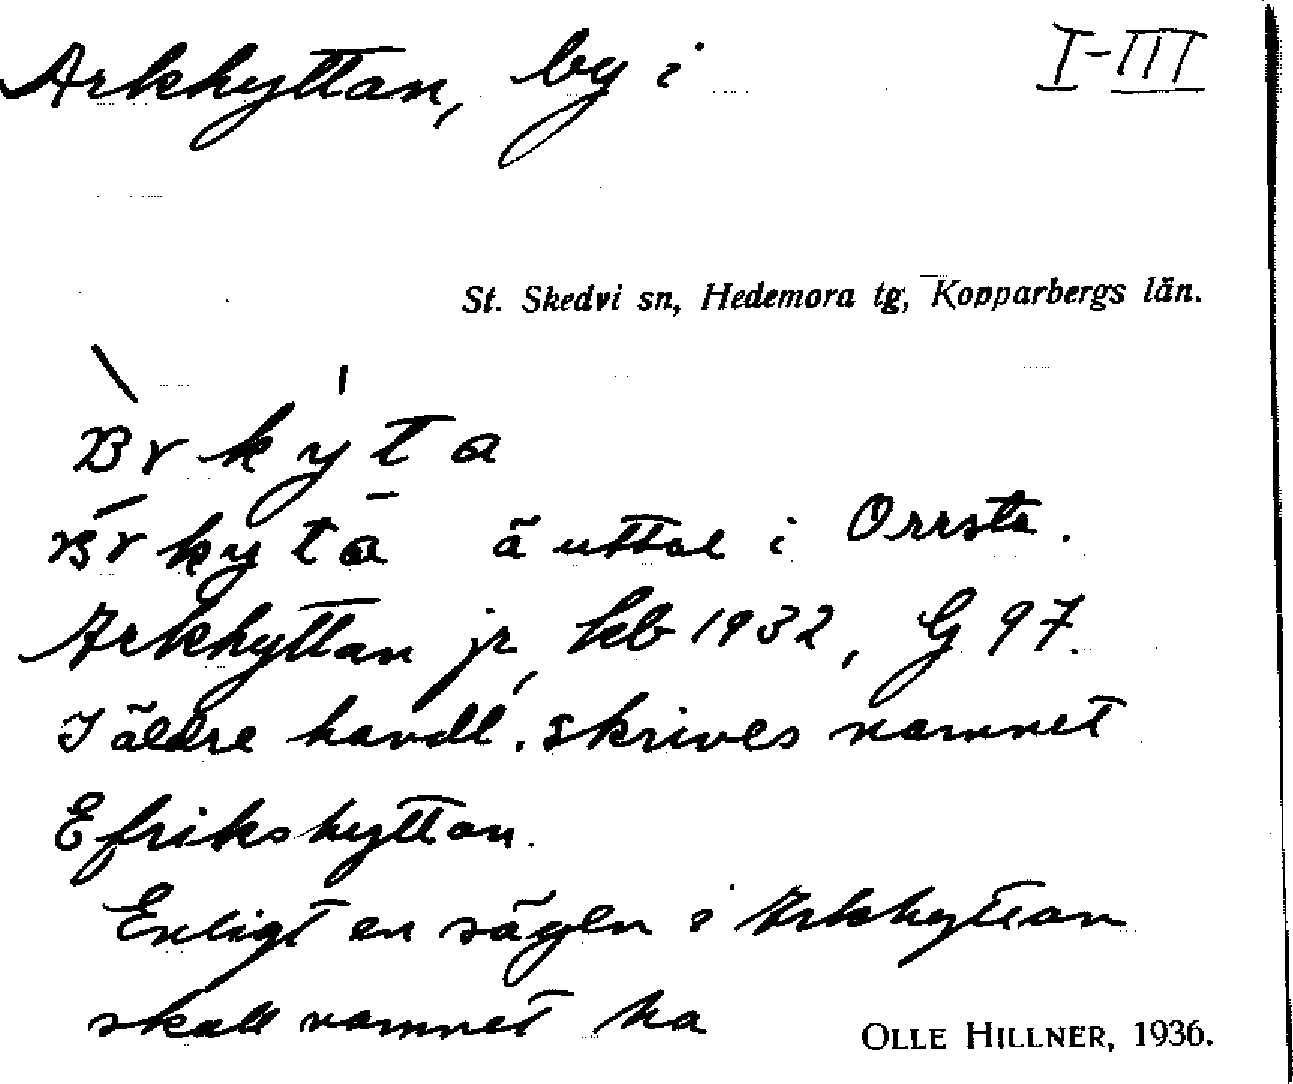 Arkhyttan, by i
I-III
St. Skedvi sn, Hedemora tg, Kopparbergs län.
ä uttal i Orrsta.
Arkhyttan jr, kb 1932, G 97.
I äldre handl. skrives namnet
Efrikshyttan.
Enligt en sägen i Arkhyttan
skall namnet ha
OLLE HILLNER, 1936.